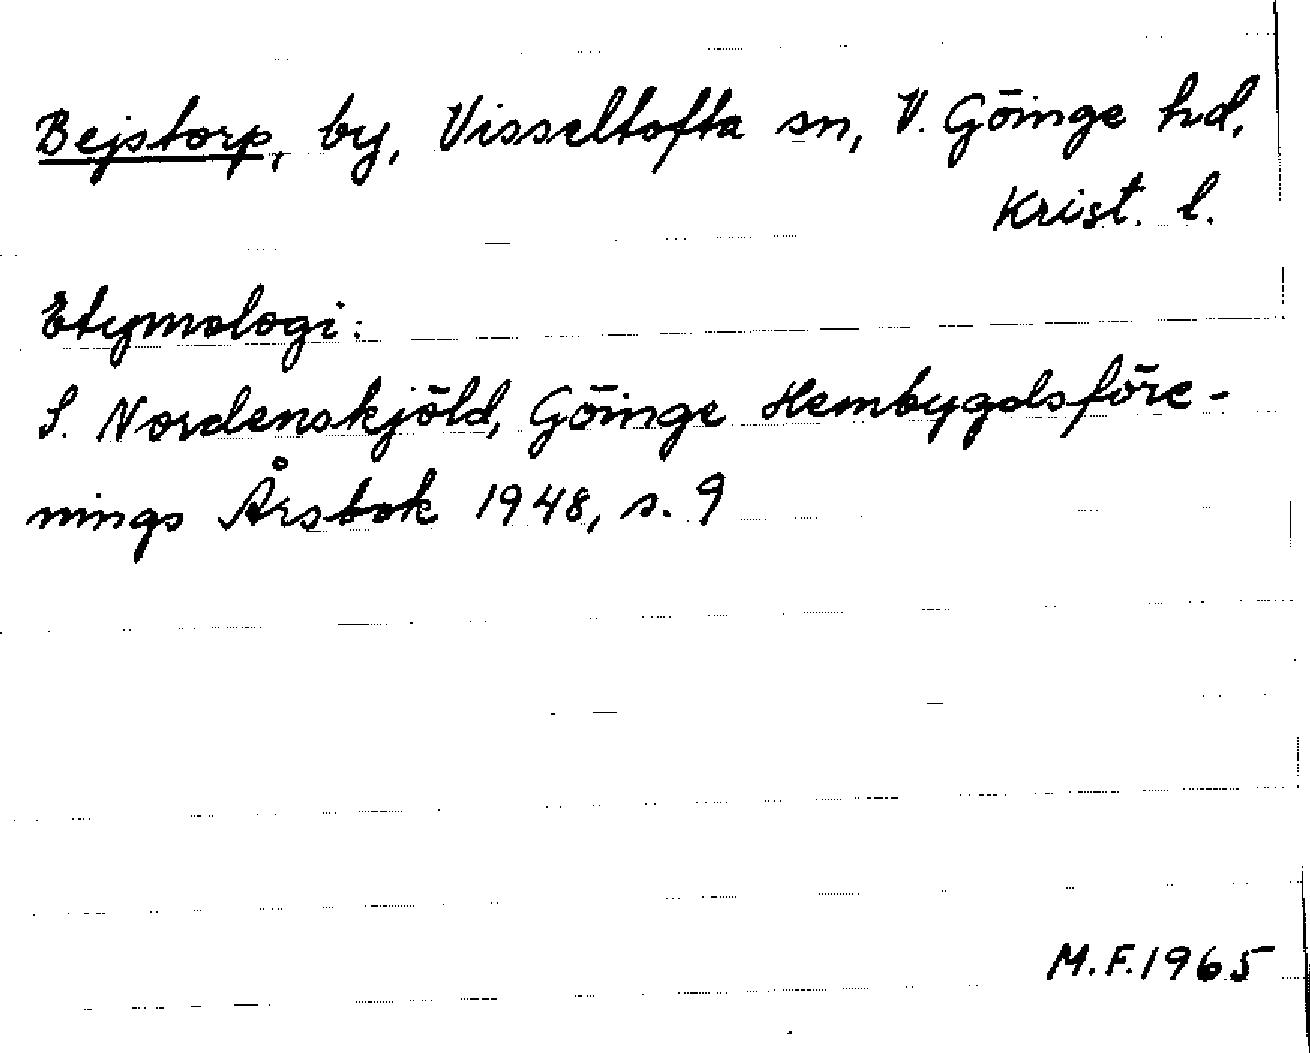 Bejstorp, by, Visseltofta sn, V. Göinge hd.
Krist. l.
Etymologi:
S. Nordenskjöld, Göinge Hembygdsföre-
nings Årsbok 1948, s. 9
M.F. 1965